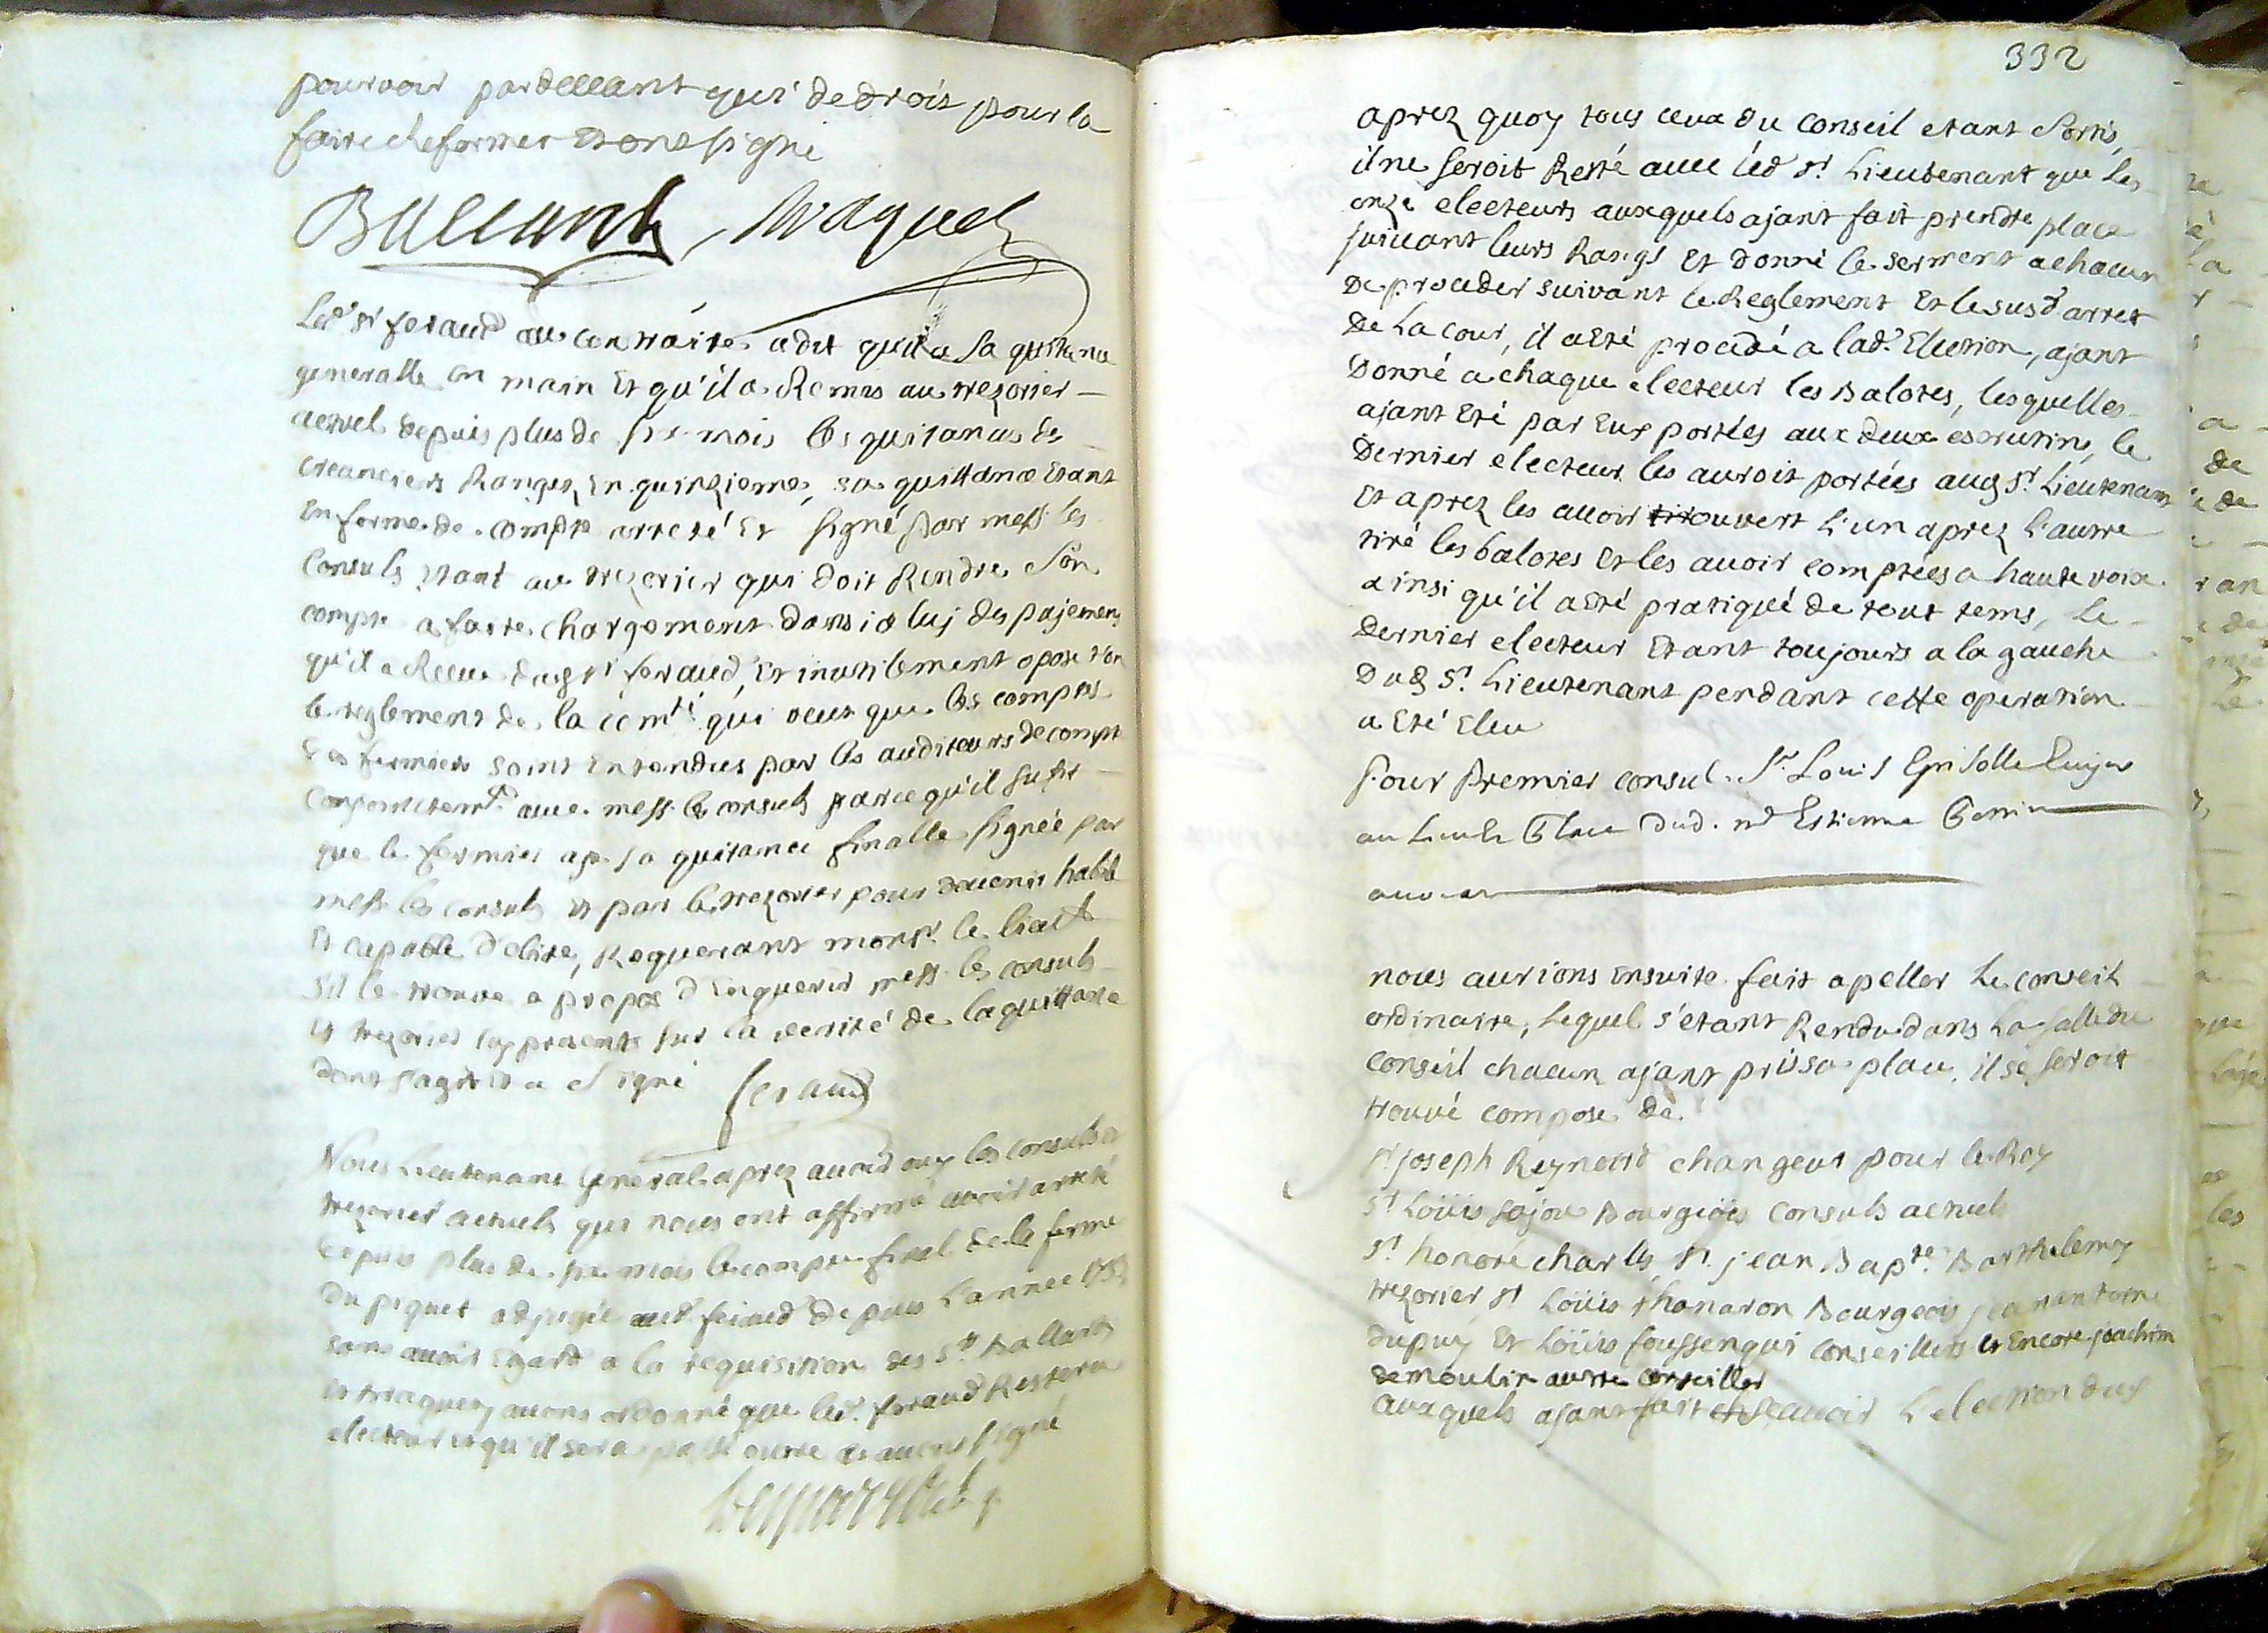 pourvoir pardevant qui de droit pour la
faire reformer et ont signé
Ballard
Led. sr feraud au contraire a dit qu'il a sa quitance
generalle en main et qu'il a Remis au trezorier
actuel depuis plus de six mois les quitances des
creanciers Rangez en quinzieme, sa quittance Etant
En forme de compte arreté Et signé par mess. les
Consuls, Etant au trezorier qui doit Rendre Son
compte a faire chargement dans iceluy des pajemens
qu'il a Receu dud sr feraud, Et inutilement opose t'on
le reglement de la comté qui veut que les comptes
des fermiers soint Entendus par les auditeurs de compte
conjointemt avec mess. les consuls parce qu'il sufit
que le fermier aye sa quitance finalle signée par
mess. les consuls et par le trezorier pour devenir habile
Et capable d'elire, Requerant monsr. le lieut
s'il le trouve a propos d'enquerir mess. les consuls
et trezorier icy presents sur la verité de la quittance
dont s'agit et a signé feraud
Nous Lieutenant General aprez avoir ouy les consuls et
trezorier actuels qui nous ont affirmé avoir arreté
depuis plus de six mois le compte final de la ferme
du piquet adjugée aud. feraud depuis l'année
sans avoir Egard a la requisition des srs Ballard
et avons ordonné que led. feraud Restera
electeur et qu'il sera passé outre et avons signé
332
aprez quoy tous ceux du conseil etant Sortis,
il ne seroit Resté avec led sr. Lieutenant que les
onze electeurs auxquels ajant fait prendre place
suivant leurs Rangs Et donné le serment a chacun
De proceder suivant le Reglement Et le susd arret
De La cour, il a Eté procédé a lad. Election, ajant
Donné a chaque electeur les Balotes, lesquelles
ajant Eté par Eux portées aux deux escrutins, le
Dernier electeur les auroit portées aud Sr. Lieutenant
Et aprez les avoir tir ouvert L'un aprez L'autre
tiré les balotes Et les avoir comptées a haute voix
ainsi qu'il a Eté pratiqué de tout tems, Le
Dernier electeur Etant toujours a la gauche
Dud Sr. Lieutenant pendant cette operation
a Eté Eleu
Pour Premier consul. Sr. Louis Grisolle
au Lieu & Place dud. Estienne
avocat
nous aurions Ensuite fait apeller Le conseil
ordinaire, Lequel s'etant Rendu dans La salle du
Conseil chacun ajant pris sa place, il se seroit
trouvé composé de
sr. joseph Reynaud changeur pour le Roy
Sr Loüis Bourgeois Consuls actuels
Sr. honoré charles, Sr. jean Bapte. Barthelemy
trezorier, sr Loüis Bourgeois, jean antoine
dupuy Et Loüis foussenqui Conseillers Et Encore joachim
demoulin autre conseiller
auxquels ajant fait sçavoir L'election dud